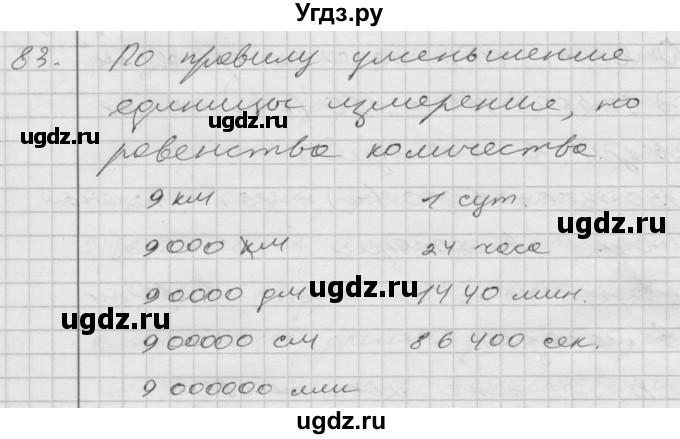 Угдз.ру
83. По правилу уменьшение
единицы измерение, но
ugdz.ru ugdz.ru
равенства количества.
9 км 1 сут.
ugdz.ru
9000 км 24 часа
90000 дм 1440 мин.
ugdz.ru ugdz.ru
900000 см 86400 сек.
9000000 мм
ugdz.ru